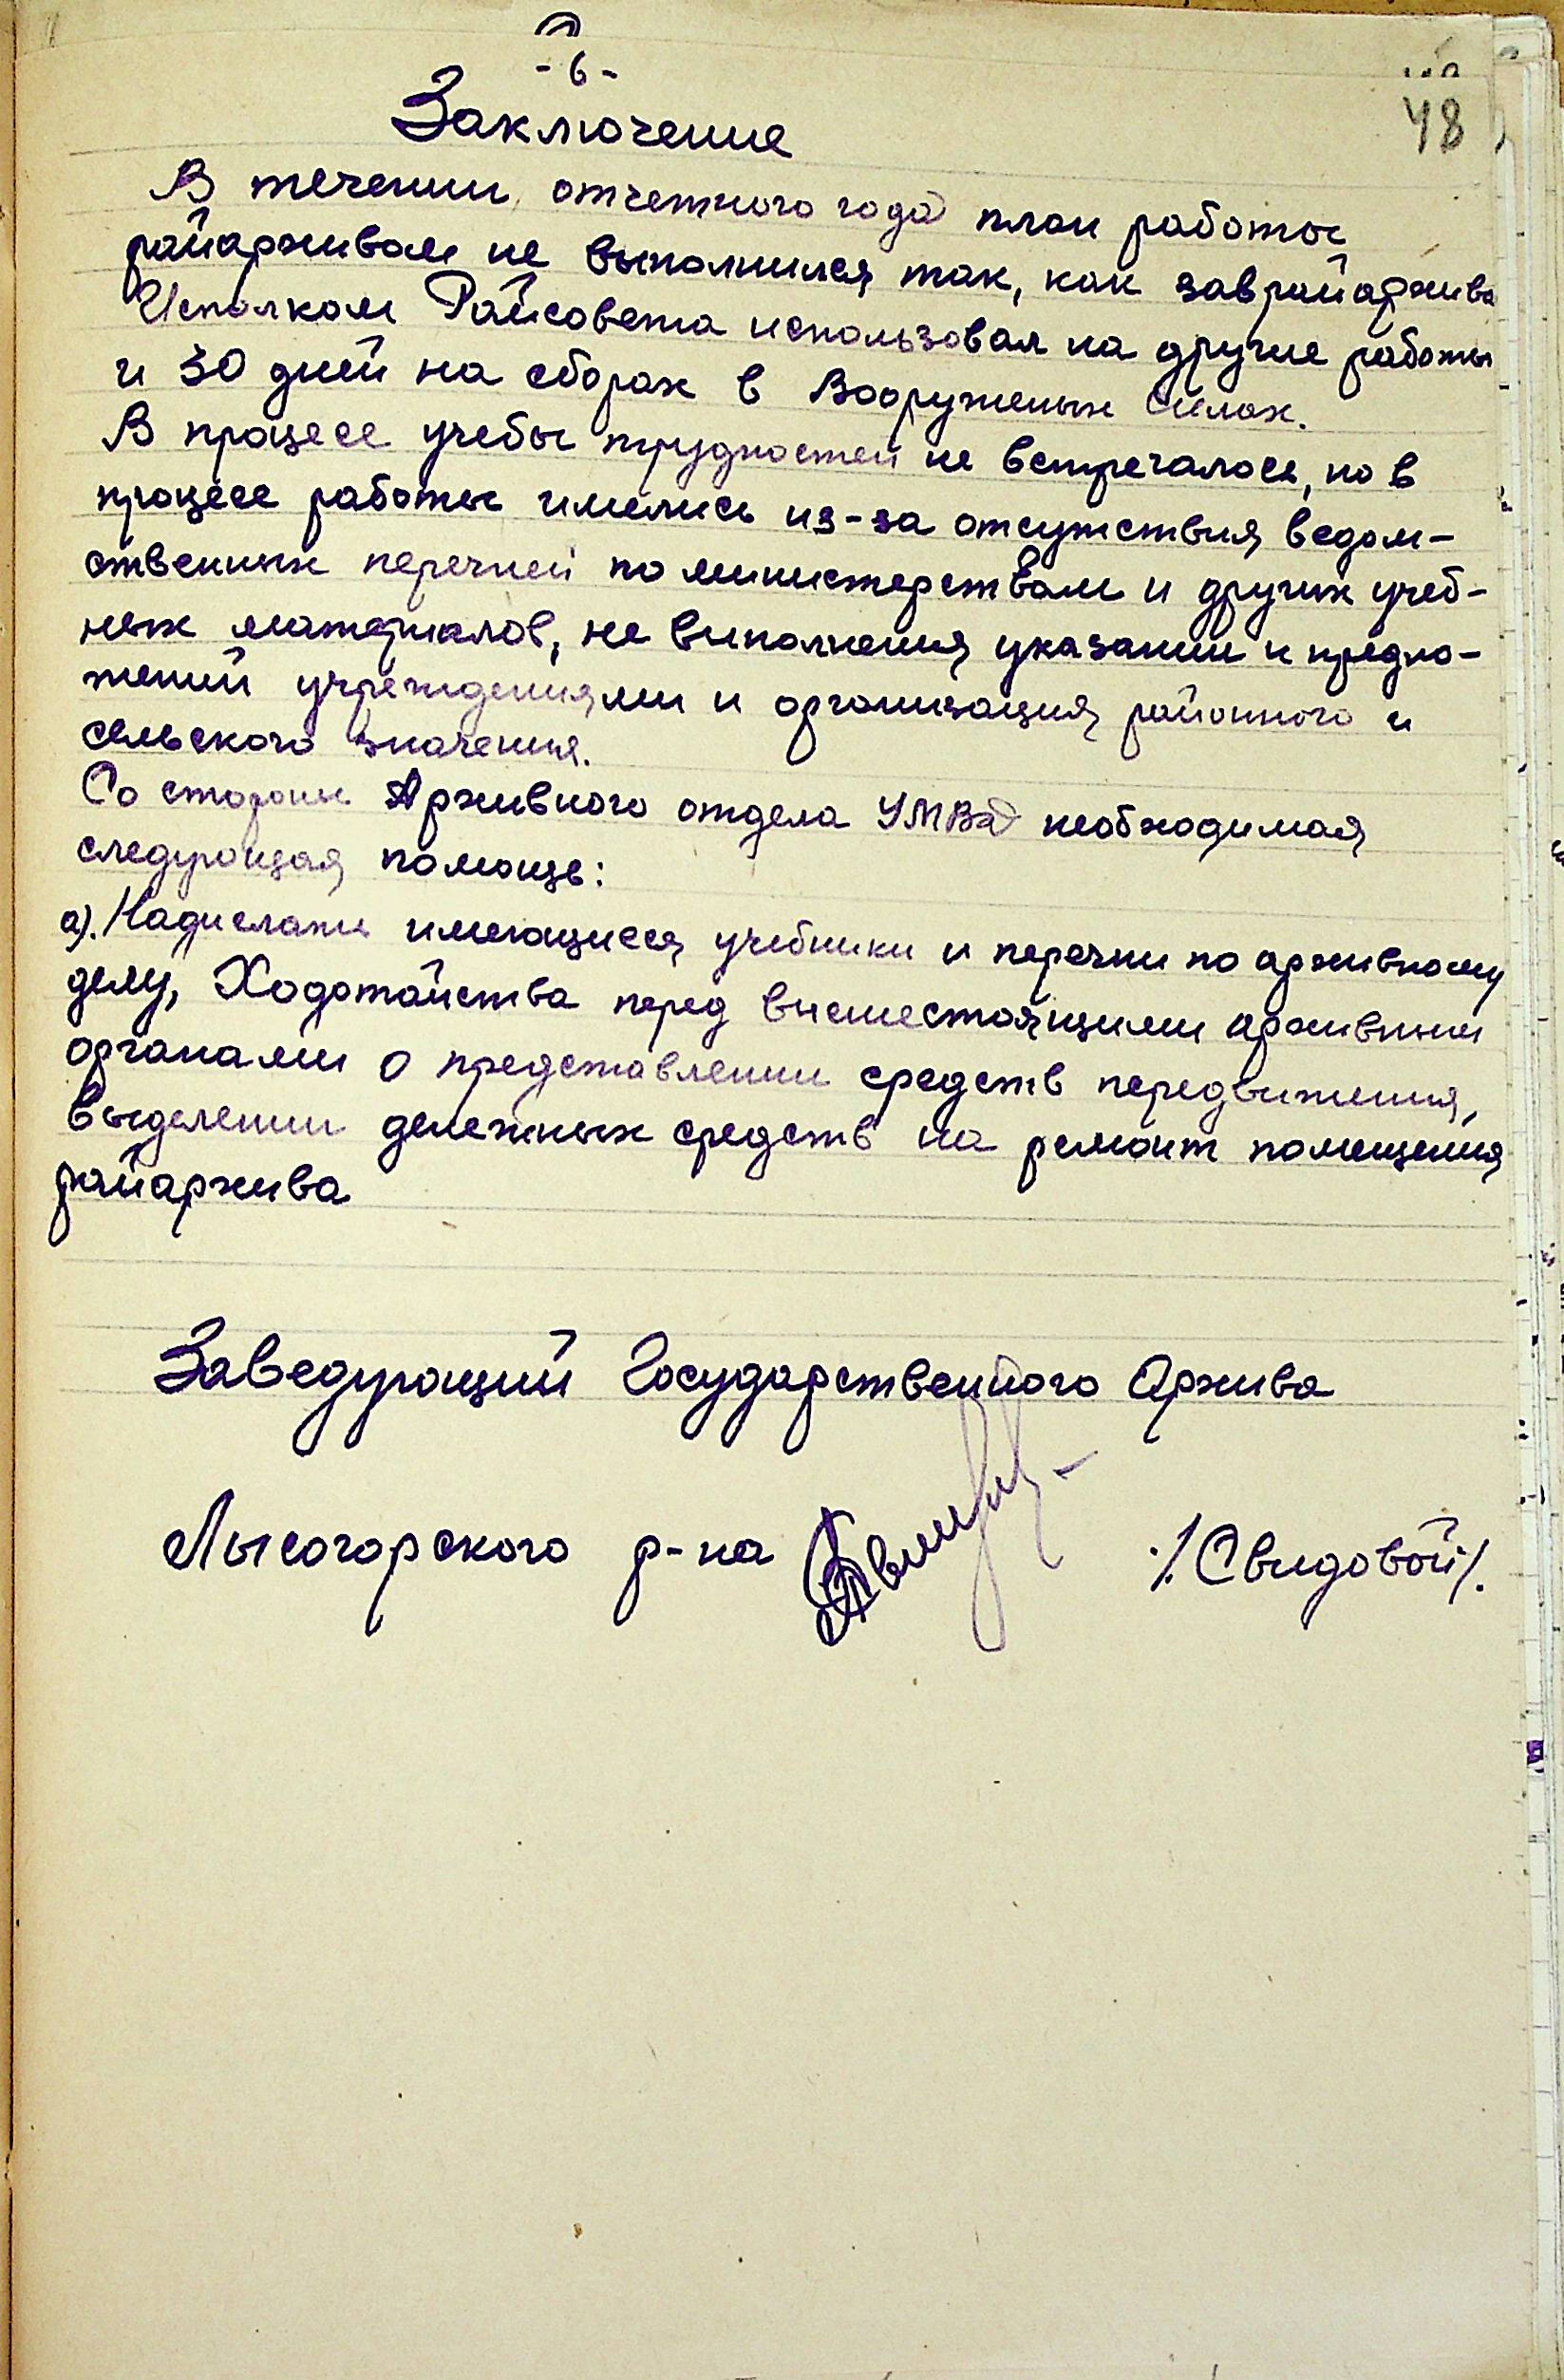 - 6 -
48
Заключение
В течении отчетного года план работы
райархивом не выполнился так, как завройархива
Исполком Райсовета использовал на другие работы
и 30 дней на сборах в Вооруженых Силах.
В процесе учебы трудностей не встречалось, но в
процесе работы имелись из-за отсутствия ведом-
ственных перечней по министерствам и других учеб-
ных материалов, не выполнения указании и предло-
жений учреждениями и организация районного и
сельского значения.
Со стороны Архивного отдела УМВД необходимая
следующая помощь:
а). Надислать имеющиеся учебники и перечни по архивному
делу, Ходотайства перед вышестоящими архивными
органами о представлении средств передвижения,
выделении денежных средств на ремонт помещения
райархива
Заведующий Государственного Архива
Лысогорского р-на /.Свидовой/.